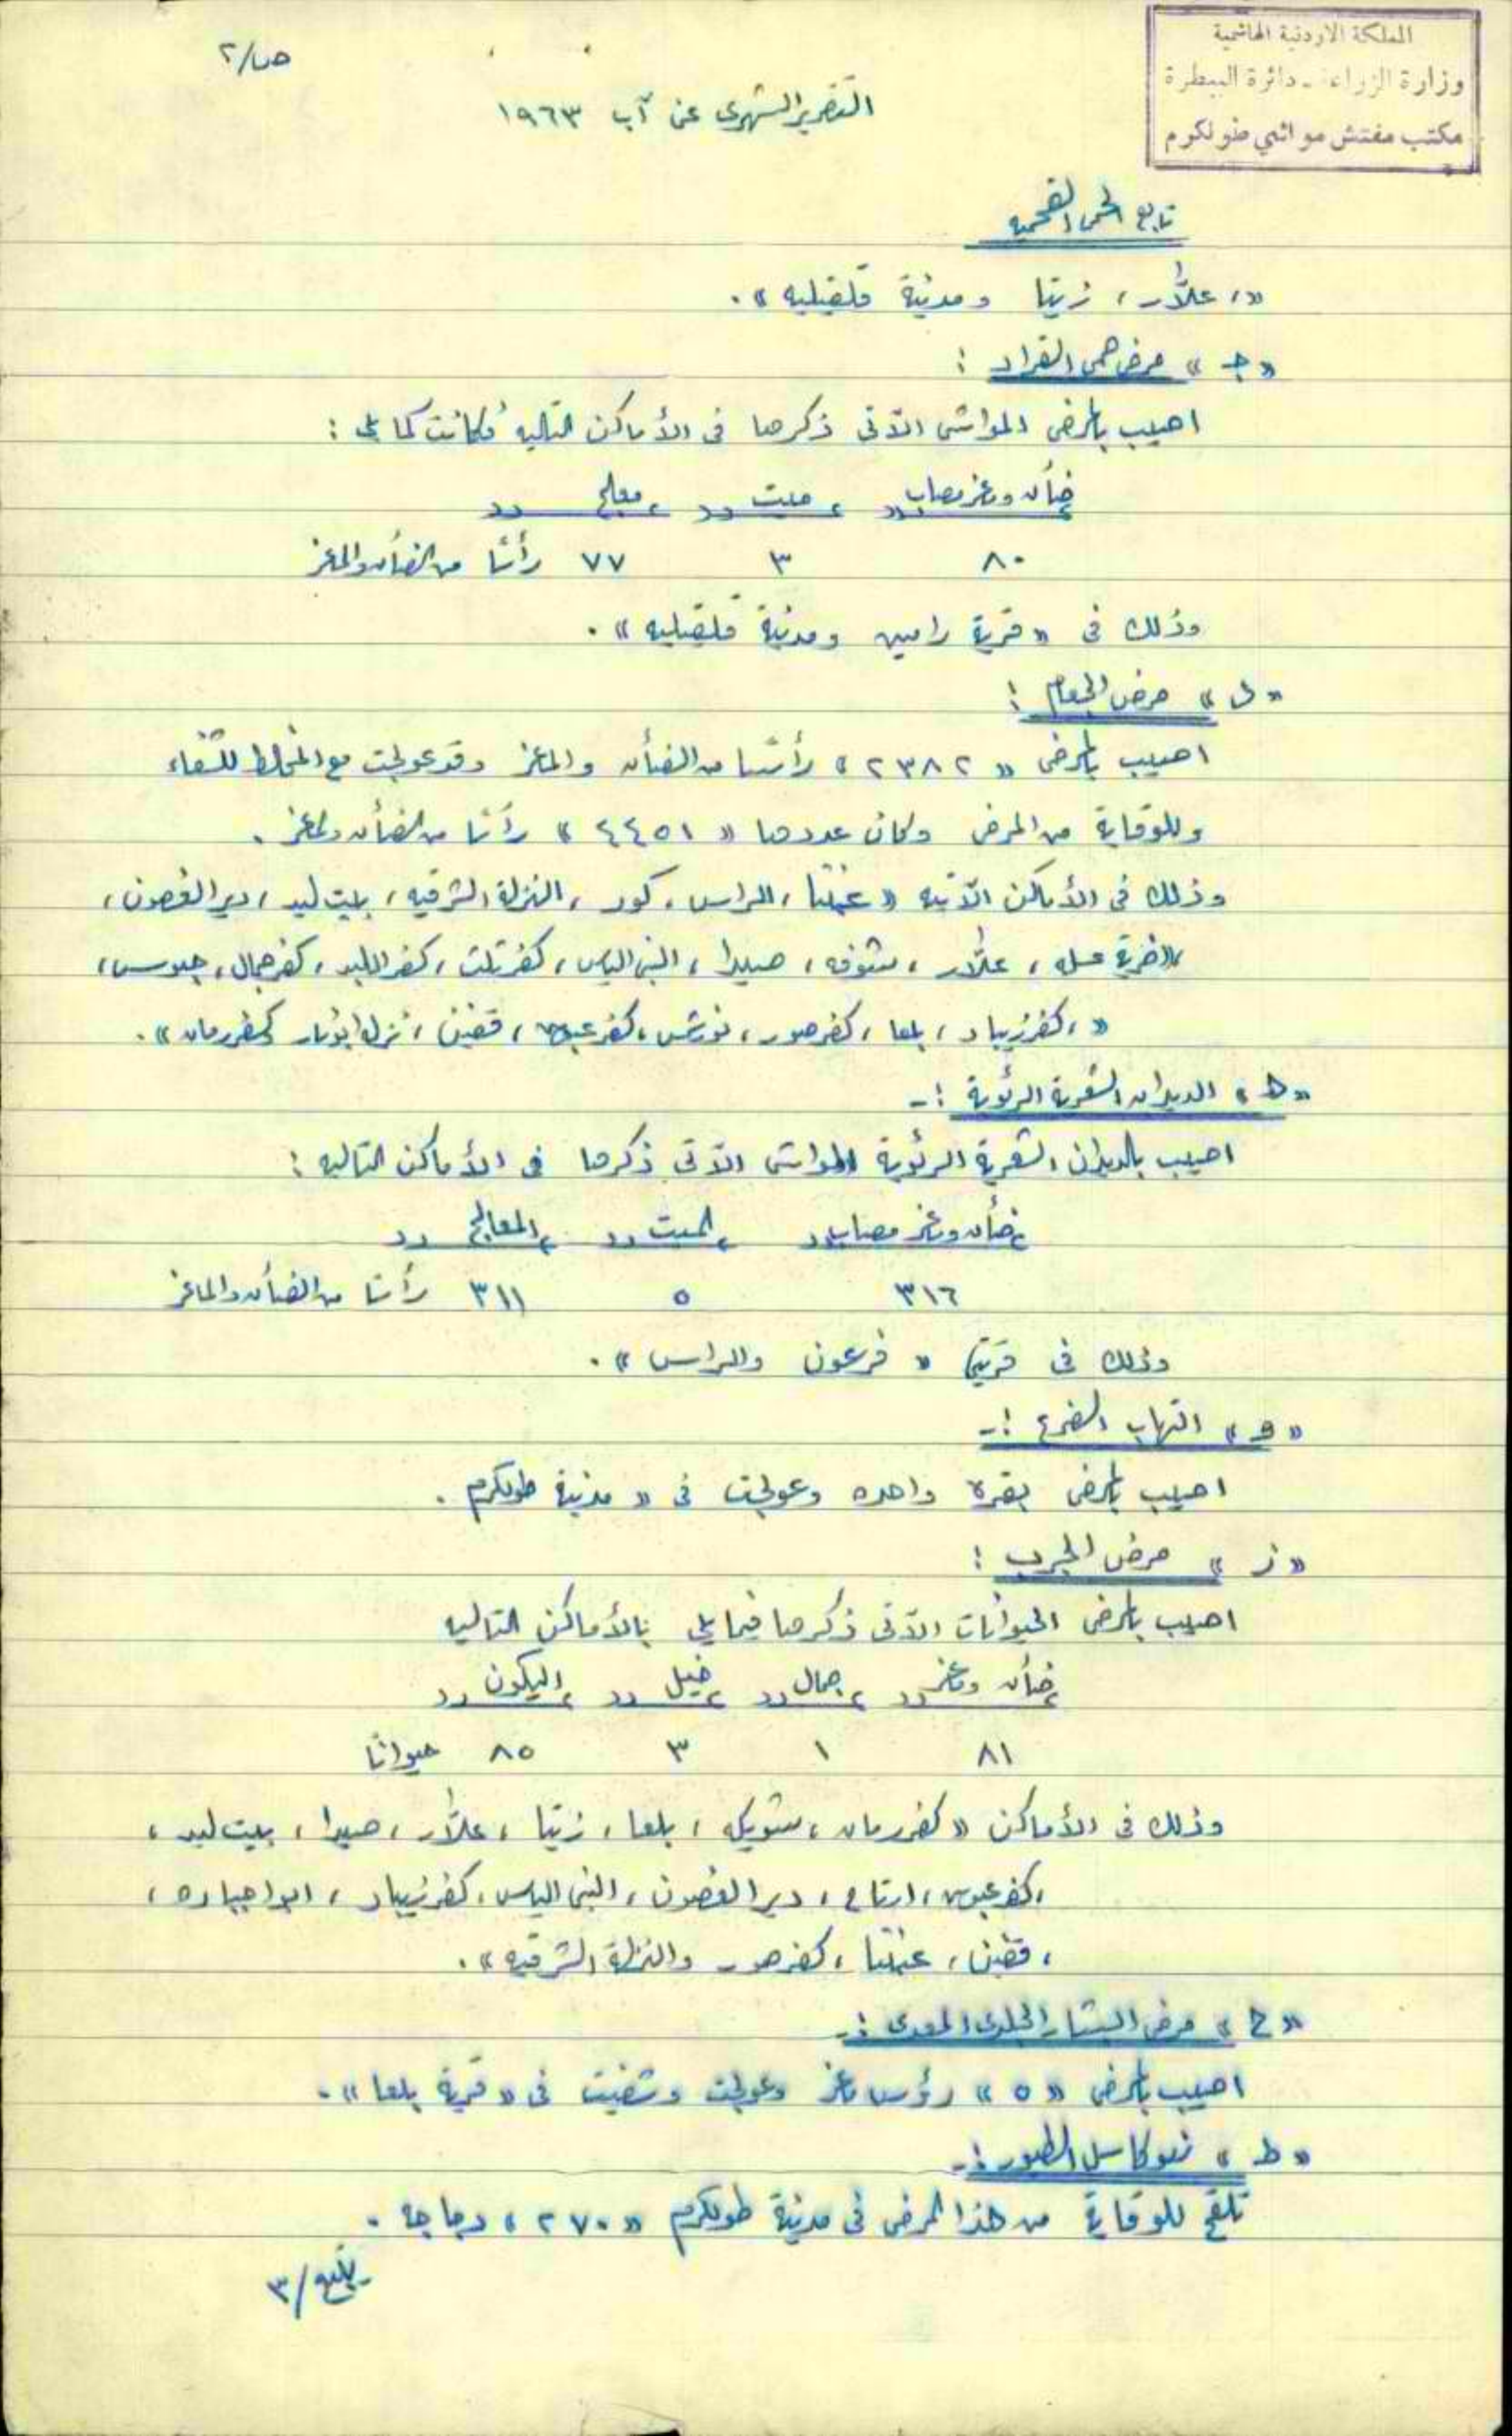 المملكة الاردنية الهاشمية
وزارة الزراعة - دائرة البيطرة
مكتب مفتش مواشي طولكرم
ص/٢
التقرير الشهري عن آب ١٩٦٣
تابع الحمى الفحميه
«، علّار، زيتا ومدينة قلقيليه».
«ج» مرض حمى القراد :
اصيب بالمرض المواشي الآتي ذكرها في الأماكن التاليه فكانت كما يلي :
ضأن وماعز مصاب، ميت، معالج
٨٠ ٣ ٧٧ رأسًا من الضأن والماعز
وذلك في «قرية رامين ومدينة قلقيليه».
«د» مرض الجعام :
اصيب بالمرض «٢٣٨٢» رأسًا من الضأن والماعز وقد عولجت مع المخالط للشفاء
وللوقاية من المرض وكان عددها «٤٤٥١» رأسًا من الضأن والماعز.
وذلك في الأماكن الآتيه «عتيل، الراس، كور، النزلة الشرقيه، بيت ليد، دير الغصون،
علّار، شوفه، صيدا، النبي الياس، كفر ثلث، كفر اللبد، كفر جمال، جيوس،
«، كفر زيباد، بلعا، كفر صور، نور شمس، كفر عبوش، قفين، نزلة ابو نار كفر رمان».
«ه» الديدان الشعرية الرئوية :-
اصيب بالديدان الشعرية الرئوية المواشي الآتي ذكرها في الأماكن التاليه :
ضأن وماعز مصاب، الميت، المعالج
٣١٦ ٥ ٣١١ رأسًا من الضأن والماعز
وذلك في قريتي «فرعون والراس».
«و» التهاب الضرع :-
اصيب بالمرض بقرة واحده وعولجت في «مدينة طولكرم.
«ز» مرض الجرب :
اصيب بالمرض الحيوانات الآتي ذكرها فيما يلي بالأماكن التاليه
ضأن وماعز، جمال، خيل، اليكون
٨١ ١ ٣ ٨٥ حيوانًا
وذلك في الأماكن «كفر رمان، شويكه، بلعا، زيتا، علّار، صيدا، بيت ليد،
، كفر عبوش، ارتاح، دير الغصون، النبي الياس، كفر زيباد،
، قفين، عتيل، كفر صور والنزلة الشرقيه».
«ح» مرض البثار الجلدى المعدى :-
اصيب بالمرض «٥» رؤوس ماعز وعولجت وشفيت في «قرية بلعا».
«ط» نيوكاسل الطيور :-
تلقح للوقاية من هذا المرض في مدينة طولكرم «٢٧٠» دجاجه.
يتبع/٣